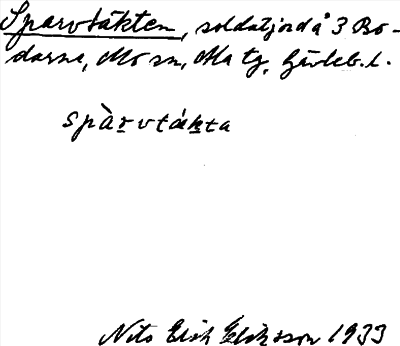 Sparvtäkten, soldatjord å 3 Bo-
darna, Mo sn, Ala tg, Gävleb. l.
spàrvtákta
Nils Erik Eliksson 1933